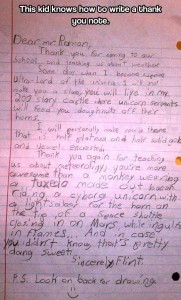 This kid knows how to write a thank
you note.
Dear mr. Ramon,
Thank you for coming to our
School, and teaching us about weather
Some day when I become supreme
Ultra-Lord of the universe I will not
make you a slave, you will live in my
200 story castle where unicorn servants
will feed you doughnuts off their
horns.
I will personally make you a throne
that is half platinum and half solid gold
and jewel encrusted.
Thank you again for teaching
us about meteorology, you're more
awesome than a monkey wearing
a tuxedo made out bacon
riding a cyborg unicorn with
a lightsaber for the horn on
the tip of a space shuttle
closing in on Mars while ingulfed
in flames... And in case
you didn't know, that's pretty
dang sweet.
Sincerely, Flint.
P.S. Look on back for drawing